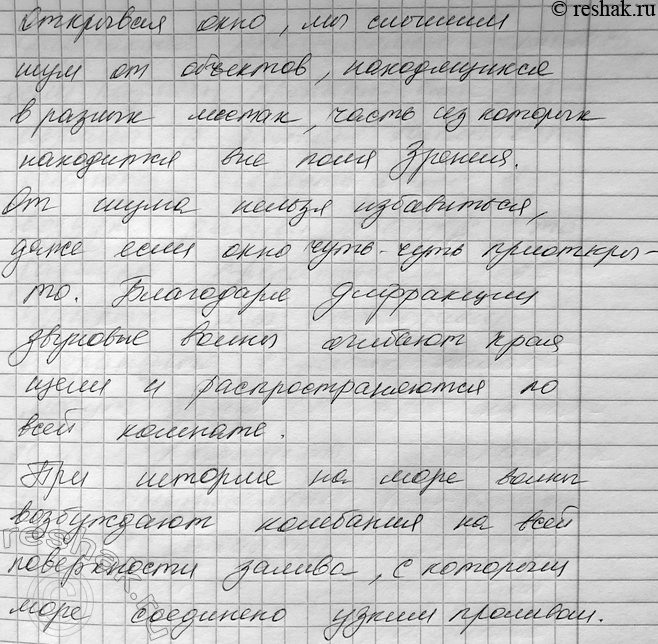 © reshak.ru
Открывая окно, мы слышим
шум от объектов, находящихся
в разных местах, часть из которых
находится вне поля зрения.
От шума нельзя избавиться,
даже если окно чуть-чуть приоткры-
то. Благодаря дифракции
звуковые волны огибают края
щели и распространяются по
всей комнате.
При шторме на море волны
возбуждают колебания на всей
поверхности залива, с которым
море соединено узким проливом.
reshak.ru